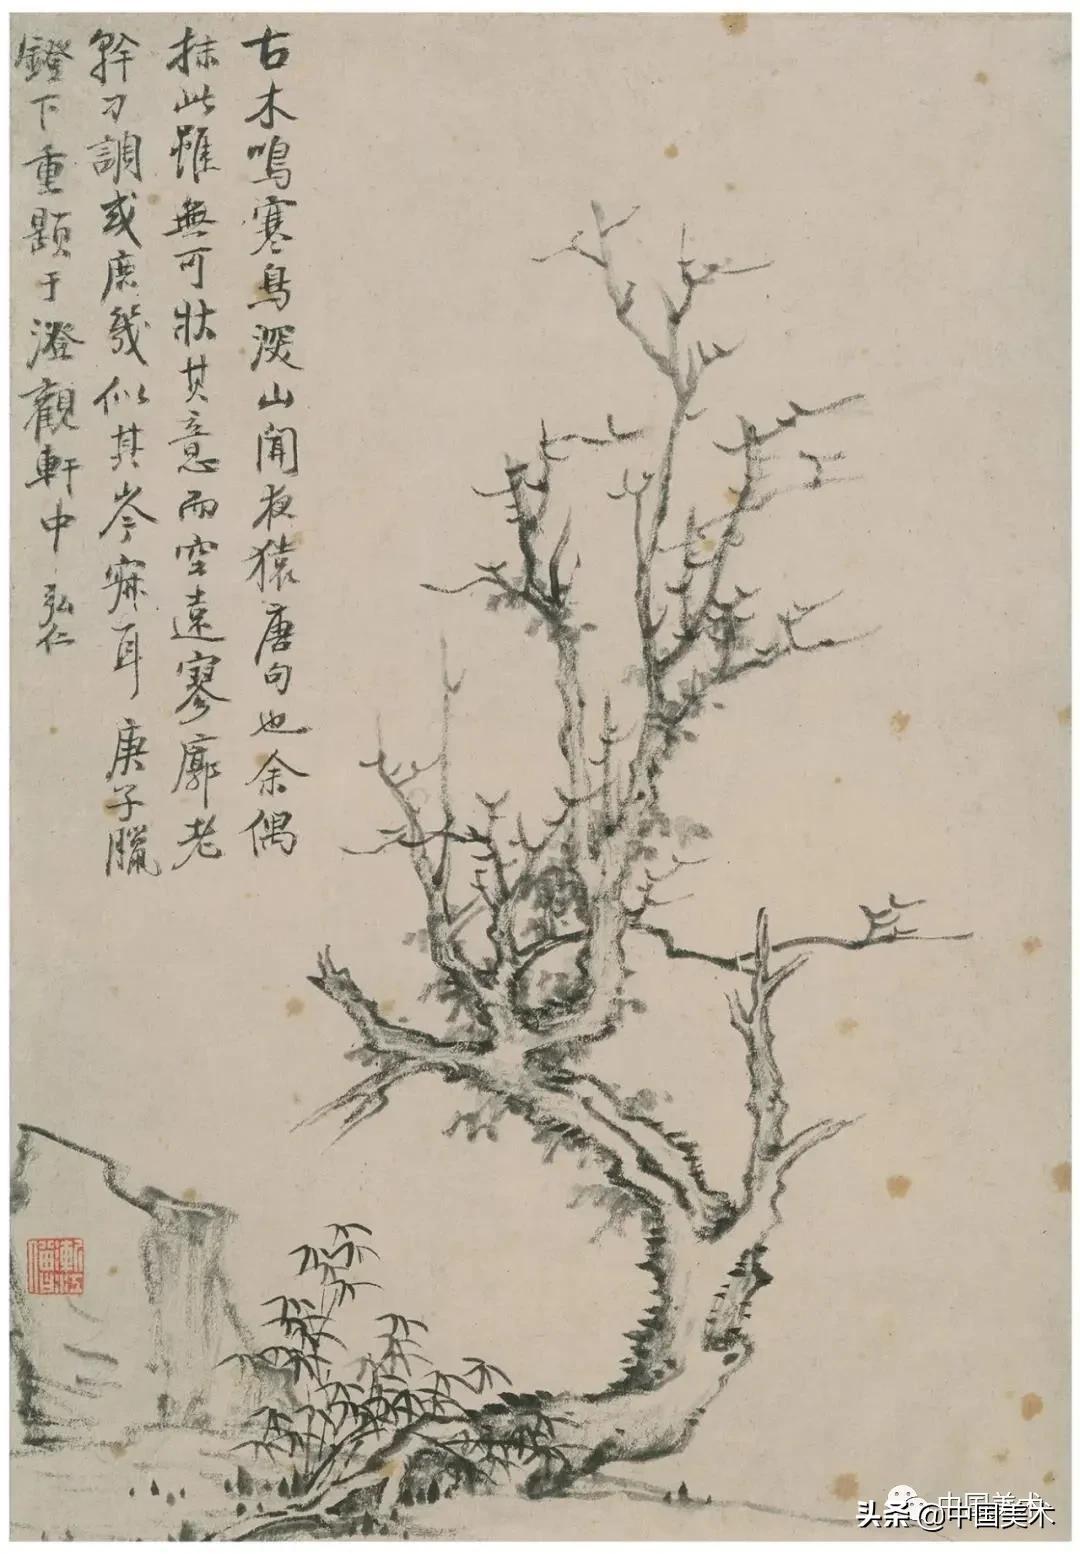 古木鳴寒鳥深山聞夜猿唐句也余偶
抹此雖無可狀其意而空遠寥廓老
幹刁調或庶幾似其岑寂耳庚子臘
鐙下重題于澄觀軒中 弘仁
漸江僧
中国美术
头条 @中国美术